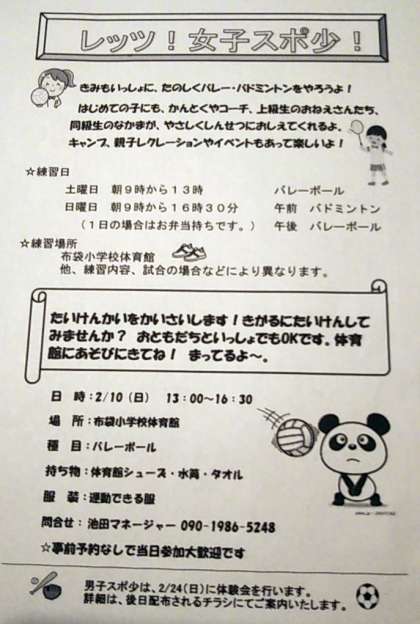 レッツ！女子スポ少！
きみもいっしょに、たのしくバレー・バドミントンをやろうよ！
はじめての子にも、かんとくやコーチ、上級生のおねえさんたち、
同級生のなかまが、やさしくしんせつにおしえてくれるよ。
キャンプ、親子レクレーションやイベントもあって楽しいよ！
☆練習日
土曜日　朝９時から１３時　バレーボール
日曜日　朝９時から１６時３０分　午前　バドミントン
（１日の場合はお弁当持ちです。）　午後　バレーボール
☆練習場所
布袋小学校体育館
他、練習内容、試合の場合などにより異なります。
たいけんかいをかいさいします！きがるにたいけんして
みませんか？　おともだちといっしょでもOKです。体育
館にあそびにきてね！　まってるよ～。
日　時：2/10（日）　13：00～16：30
場　所：布袋小学校体育館
種　目：バレーボール
持ち物：体育館シューズ・水筒・タオル
服　装：運動できる服
問合せ：池田マネージャー 090-1986-5248
☆事前予約なしで当日参加大歓迎です
男子スポ少は、2/24（日）に体験会を行います。
詳細は、後日配布されるチラシにてご案内いたします。